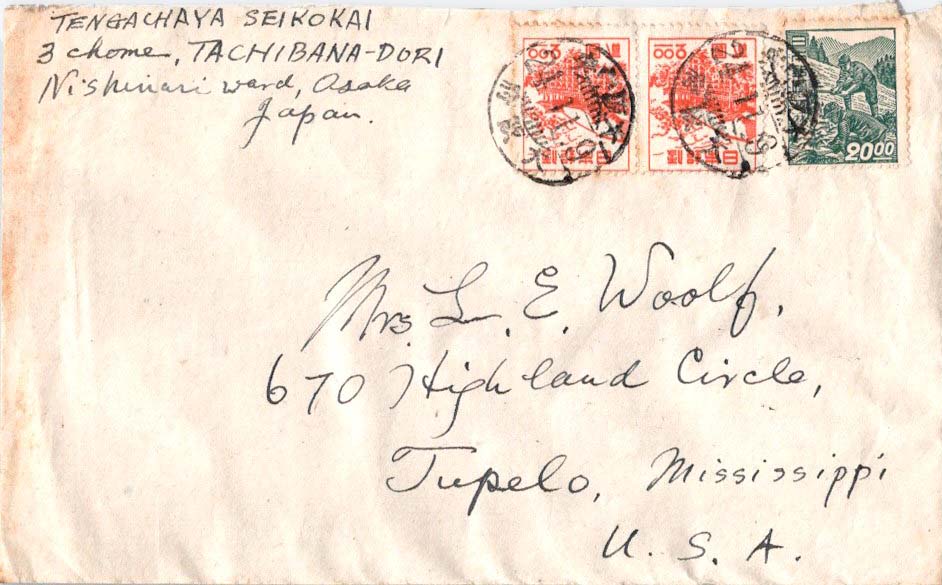 TENGACHAYA SEIKOKAI
3 chome, TACHIBANA-DORI
Nishinari ward, Osaka
Japan.
20.00
Mrs. L. E. Woolf,
670 Highland Circle,
Tupelo, Mississippi
U. S. A.